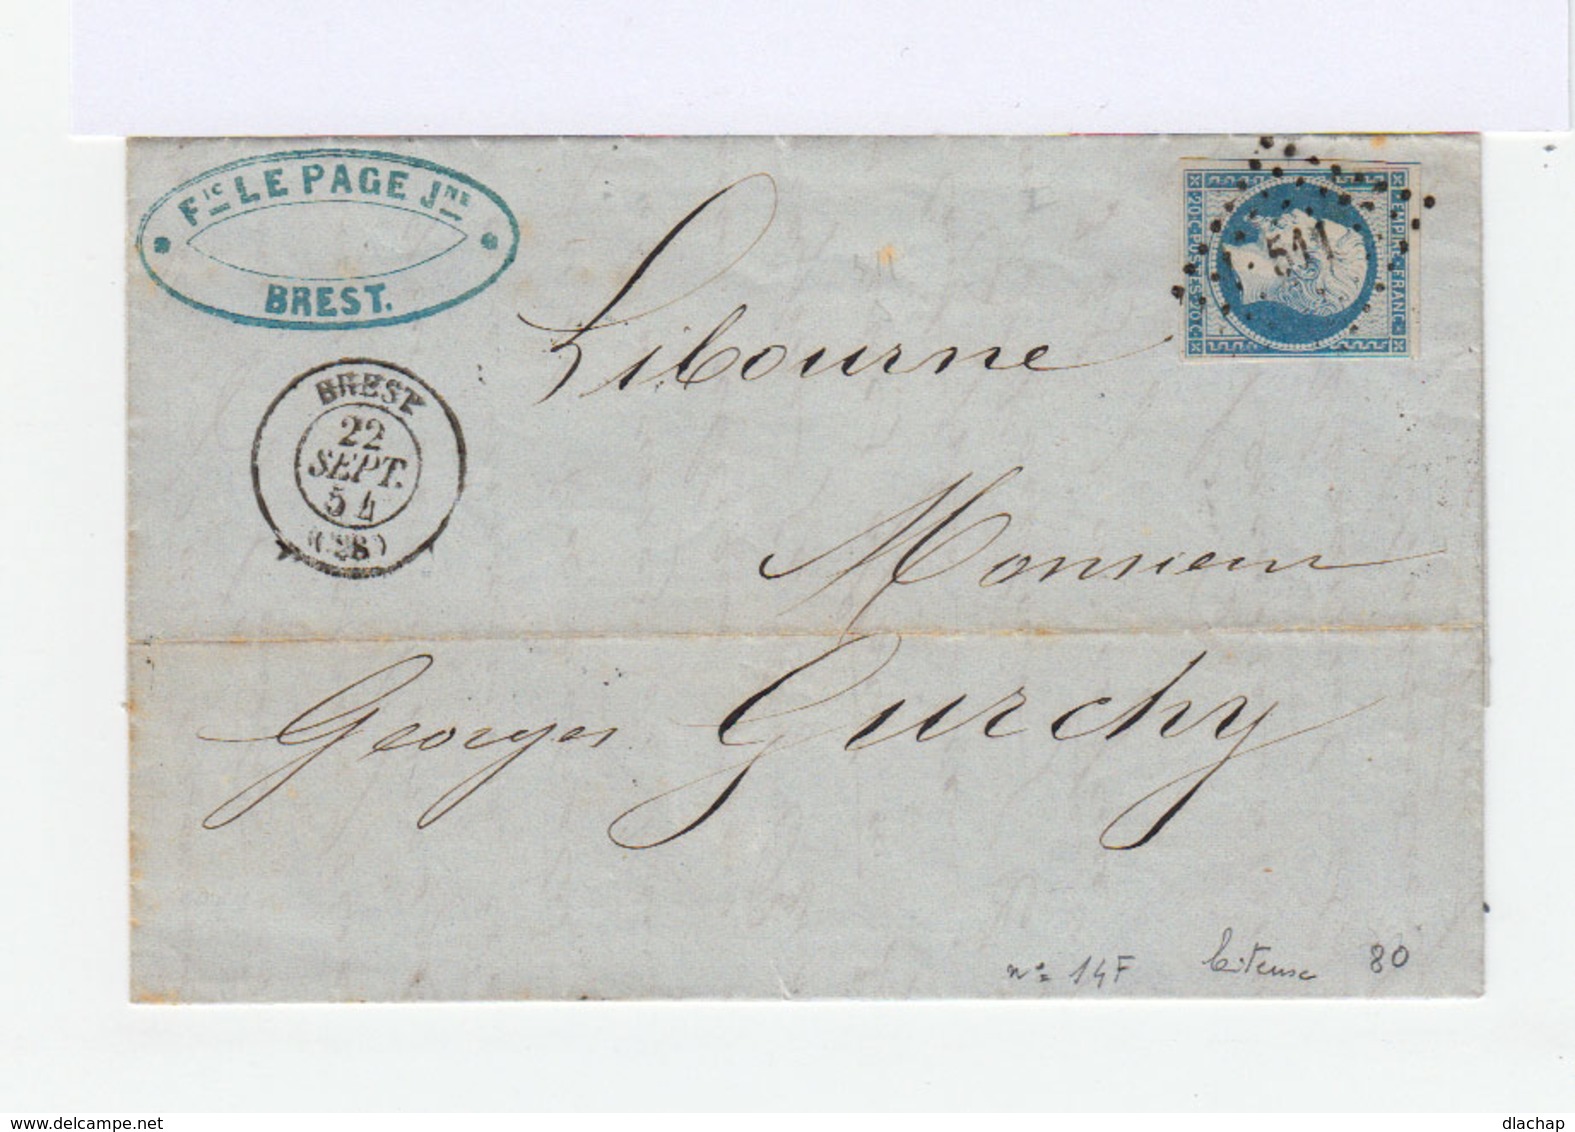 Fis LE PAGE Jne
BREST.
BREST
22
SEPT.
54
(28)
EMPIRE · FRANC ·
· 20 · C · POSTES · 20 · C ·
511
Libourne
Monsieur
Georges Gurchy
n° 14F
80
www.delcampe.net
dlachap